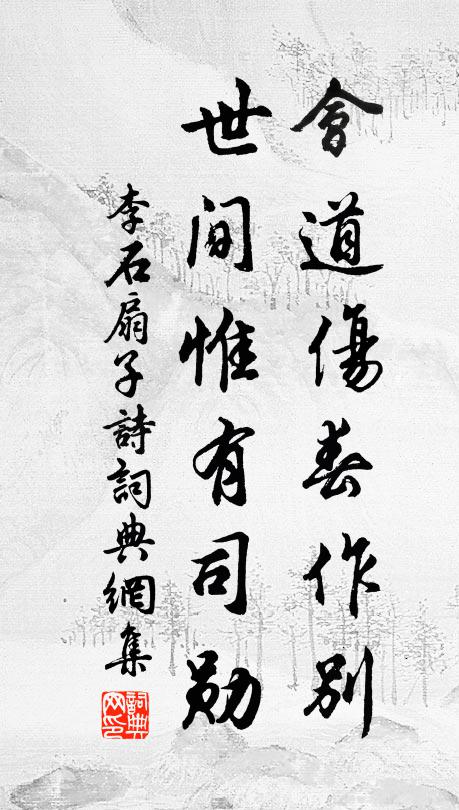 會道傷春作別
世間惟有司勛
李石扇子詩詞典網集
詞典網印